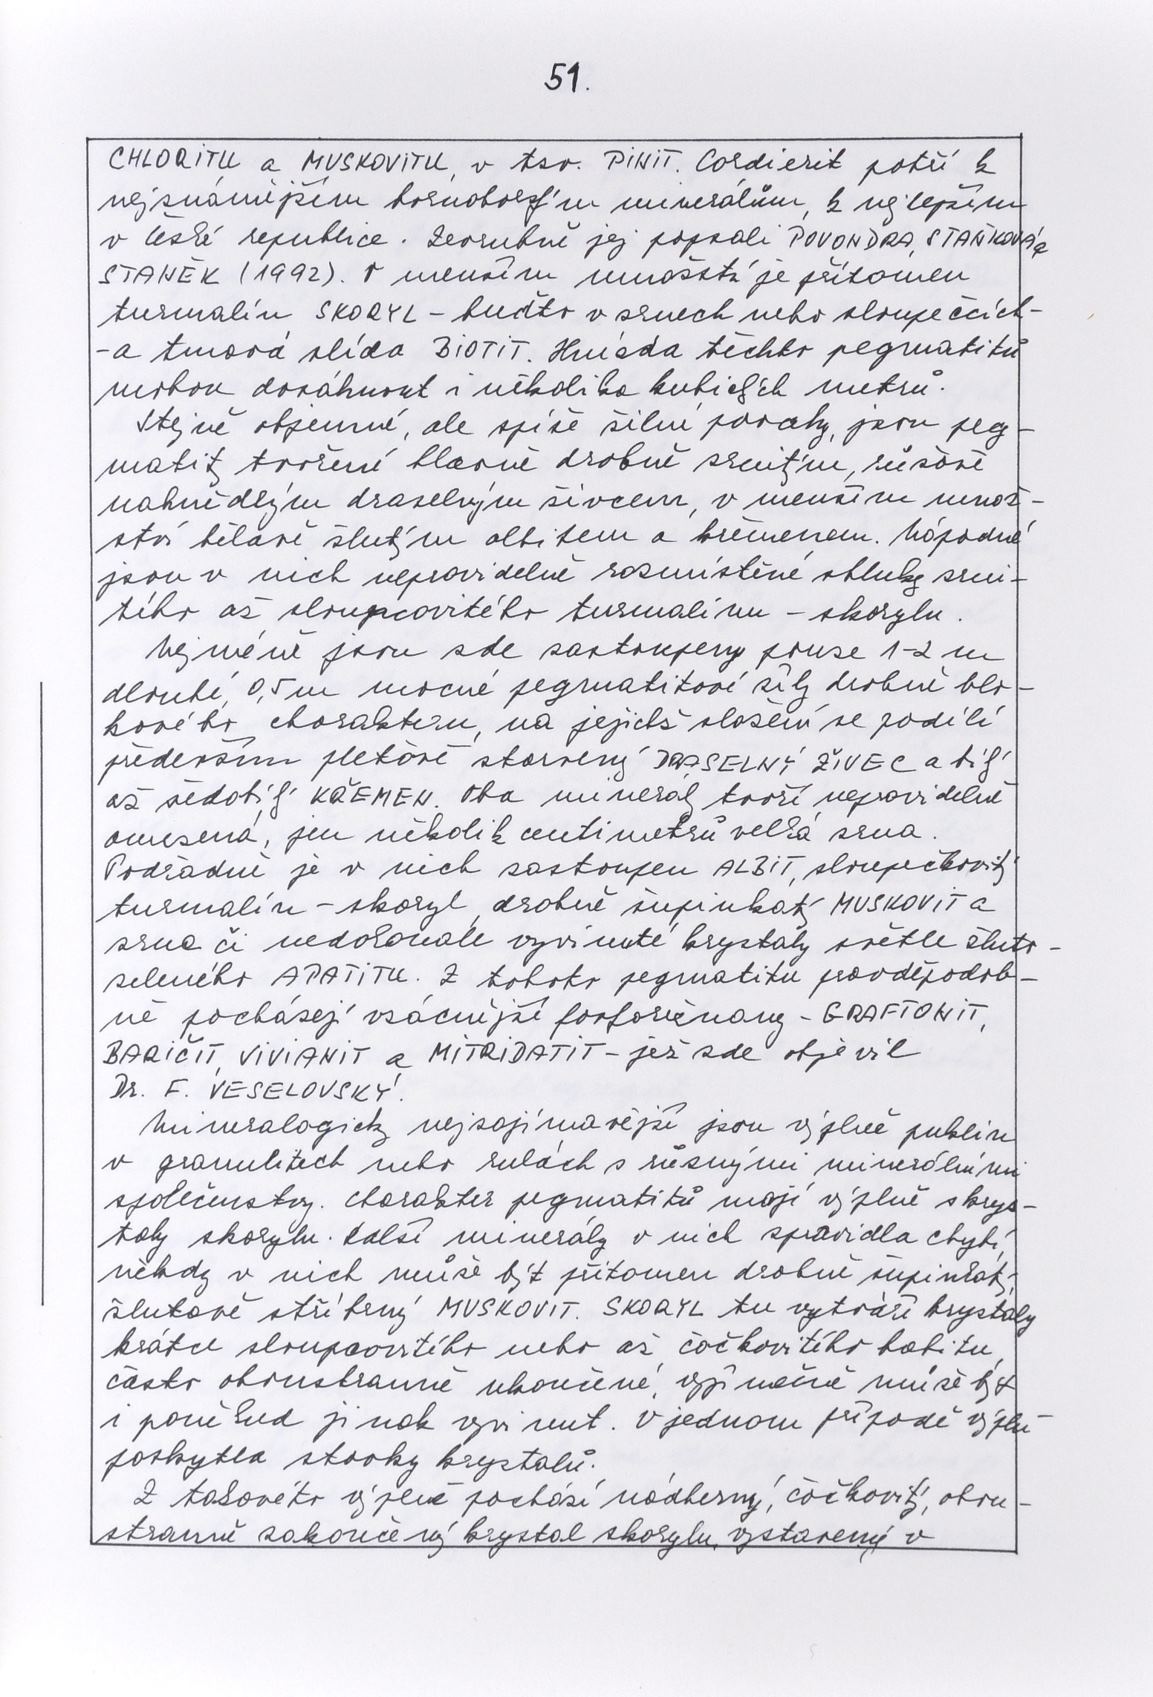 51.
CHLORITU a MUSKOVITU, v tzv. PINIT. Cordierit patří k
nejznámějším hornoborským minerálům, k nejlepším
v České republice. Zevrubně jej popsali POVONDRA, STAŇKOVÁ a
STANĚK (1992). V menším množství je přítomen
turmalín SKORYL – buďto v zrnech nebo sloupečcích –
– a tmavá slída BIOTIT. Hnízda těchto pegmatitů
mohou dosáhnout i několika kubických metrů.
Stejně objemné, ale spíše žilné povahy, jsou peg-
matity tvořené hlavně drobně zrnitým, růžově
nahnědlým draselným živcem, v menším množ-
ství bělavě žlutým albitem a křemenem. Nápadné
jsou v nich nepravidelně rozmístěné shluky zrni-
tého až sloupcovitého turmalínu – skorylu.
Nejméně jsou zde zastoupeny pouze 1-2 m
dlouhé, 0,5 m mocné pegmatitové žíly drobně blo-
kového charakteru, na jejichž složení se podílí
především pleťově zbarvený DRASELNÝ ŽIVEC a bílý
až šedobílý KŘEMEN. Oba minerály tvoří nepravidelně
omezená, jen několik centimetrů velká zrna.
Podřadně je v nich zastoupen ALBIT, sloupečkovitý
turmalín – skoryl, drobně šupinkatý MUSKOVIT a
zrna či nedokonale vyvinuté krystaly světle žluto-
zeleného APATITU. Z tohoto pegmatitu pravděpodob-
ně pocházejí vzácnější fosforečnany – GRAFTONIT,
BARIČIT, VIVIANIT a MITRIDATIT – jež zde objevil
Dr. F. VESELOVSKÝ.
Mineralogicky nejzajímavější jsou výplně puklin
v granulitech nebo rulách s různými minerálními
společenstvy. Charakter pegmatitů mají výplně s krys-
taly skorylu. Další minerály v nich zpravidla chybí,
někdy v nich může být přítomen drobně šupinkatý,
žlutavě stříbrný MUSKOVIT. SKORYL tu vytváří krystaly
krátce sloupcovitého nebo až čočkovitého habitu,
často oboustranně ukončené, výjimečně může být
i poněkud jinak vyvinut. V jednom případě výplň
poskytla stovky krystalů.
Z takovéto výplně pochází nádherný, čočkovitý, obou-
stranně zakončený krystal skorylu, vystavený v